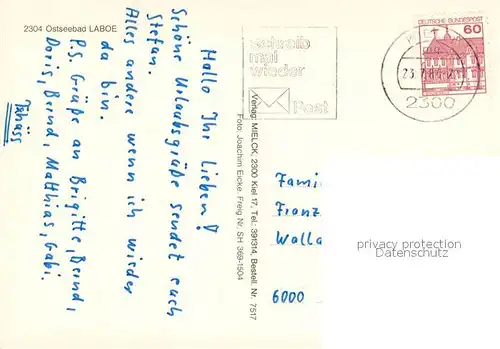 2304 Ostseebad LABOE
Hallo Ihr Lieben!
Schöne Urlaubsgrüße sendet euch
Stefan.
Alles andere wenn ich wieder
da bin.
P.S. Grüße an Brigitte, Bernd,
Doris, Bernd, Matthias, Gabi.
Tschüss
Verlag: MIELCK, 2300 Kiel 17, Tel.: 391314, Bestell. Nr. 7517
Foto: Joachim Eicke. Freig Nr. SH 369-1504
Schreib
mal
wieder
Post
2300
DEUTSCHE BUNDESPOST
60
Fami
Franz
Walla
6000
privacy protection
Datenschutz